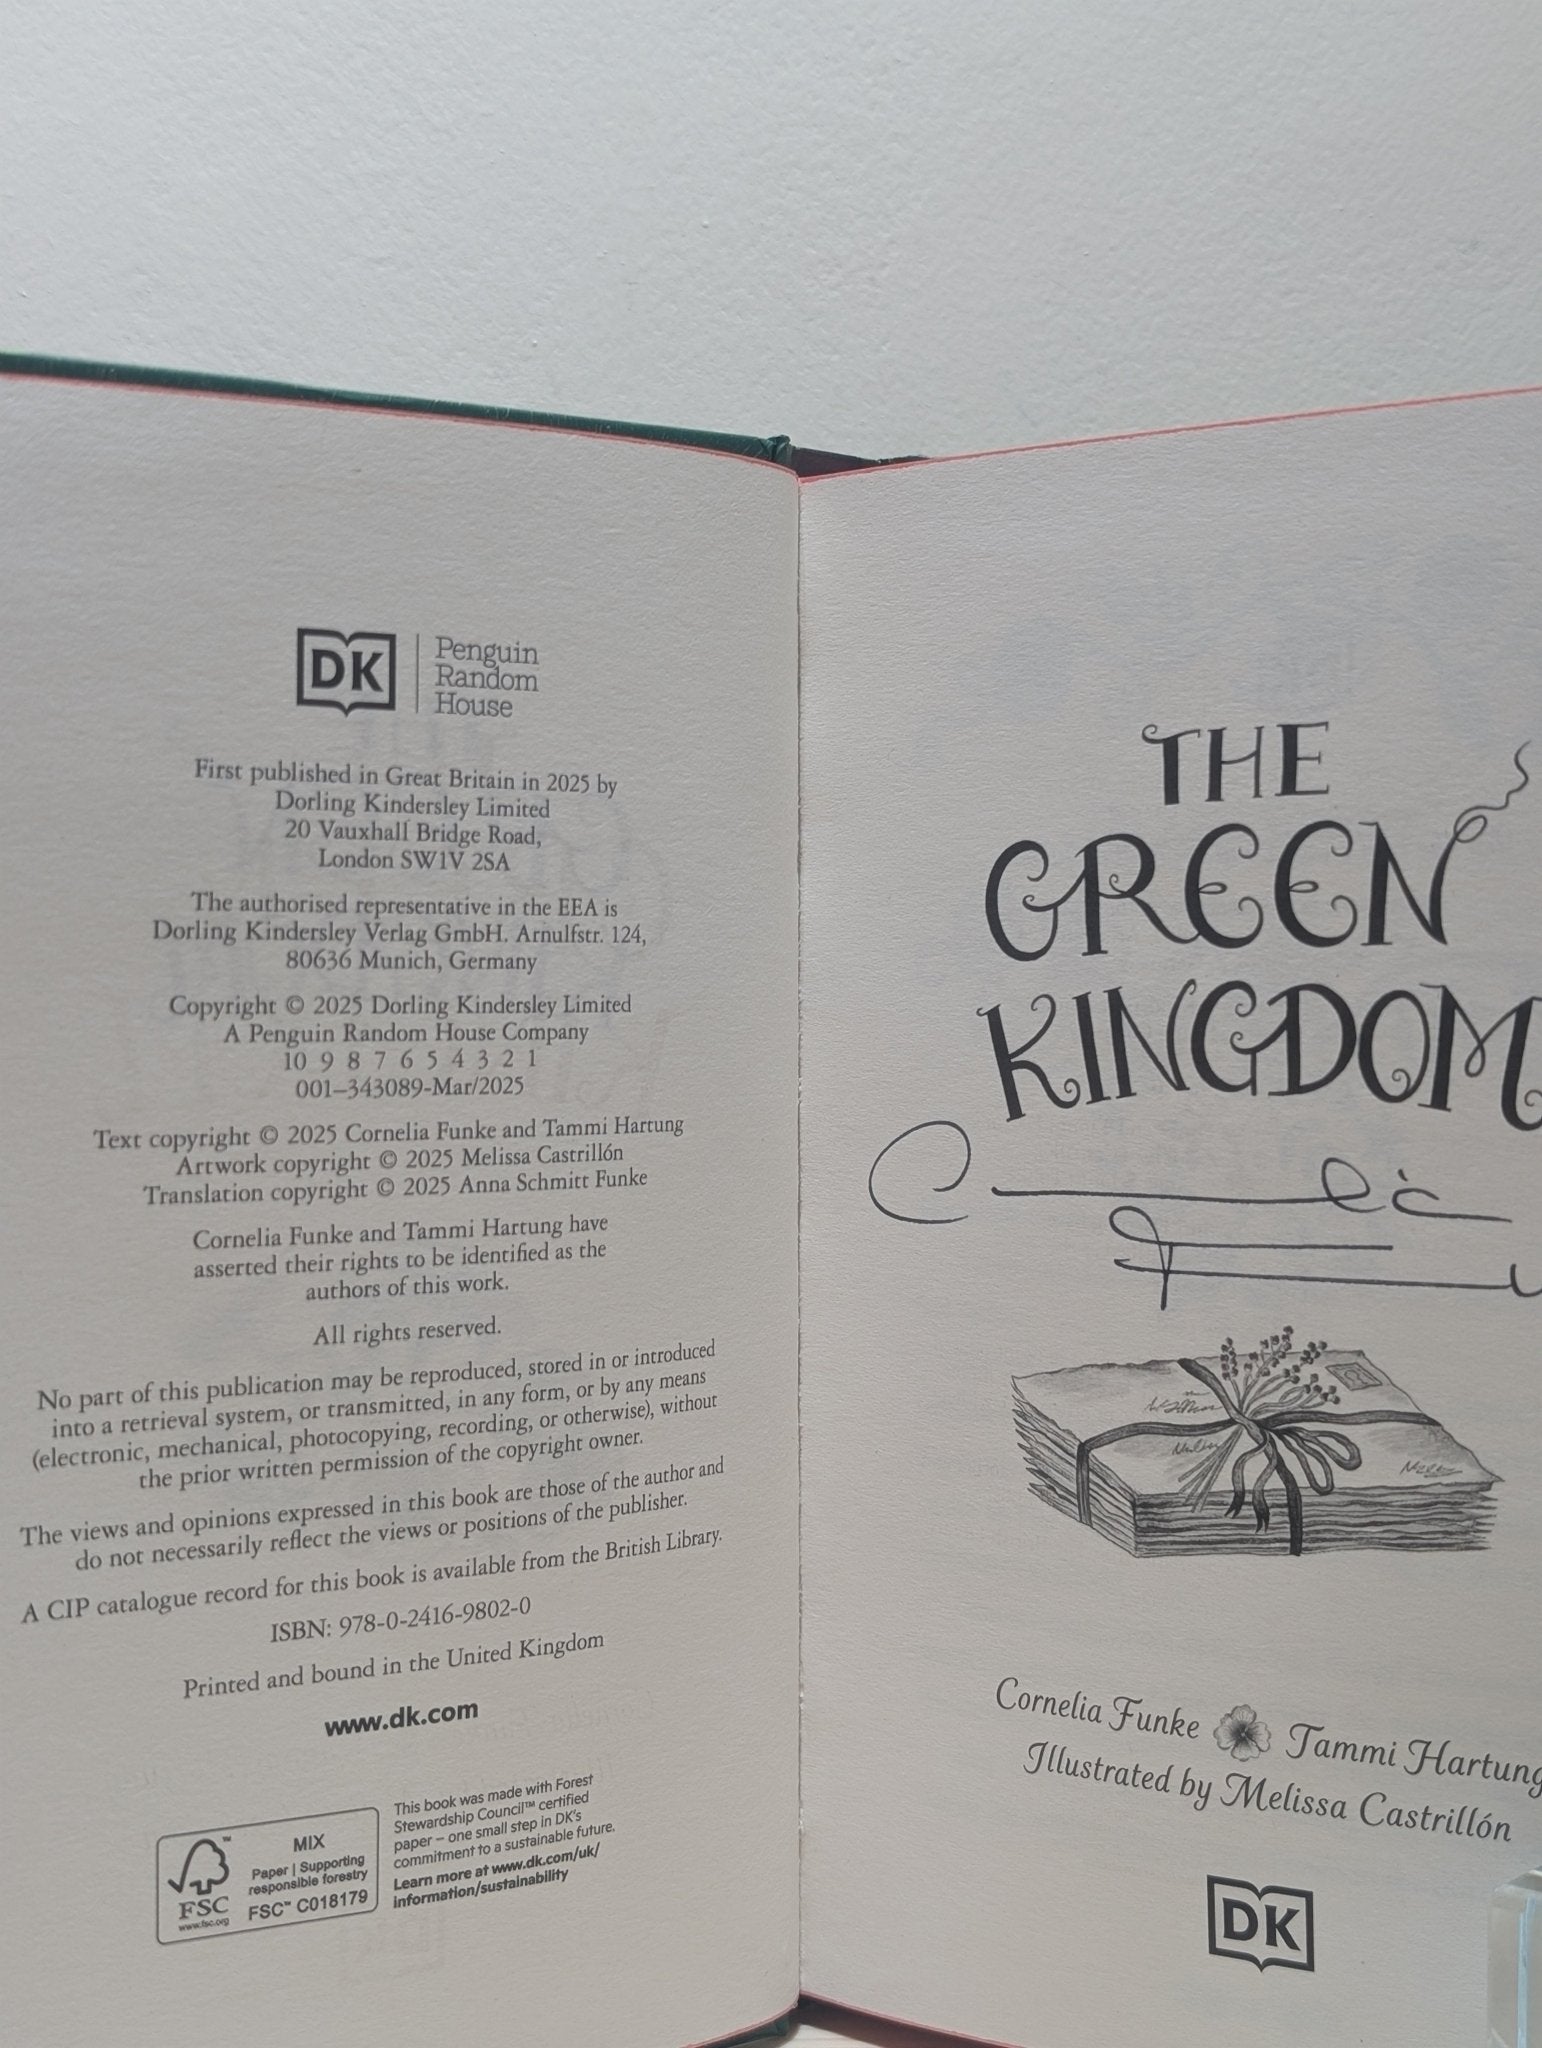 DK
Penguin
Random
House
First published in Great Britain in 2025 by
Dorling Kindersley Limited
20 Vauxhall Bridge Road,
London SW1V 2SA
The authorised representative in the EEA is
Dorling Kindersley Verlag GmbH. Arnulfstr. 124,
80636 Munich, Germany
Copyright © 2025 Dorling Kindersley Limited
A Penguin Random House Company
10 9 8 7 6 5 4 3 2 1
001–343089-Mar/2025
Text copyright © 2025 Cornelia Funke and Tammi Hartung
Artwork copyright © 2025 Melissa Castrillón
Translation copyright © 2025 Anna Schmitt Funke
Cornelia Funke and Tammi Hartung have
asserted their rights to be identified as the
authors of this work.
All rights reserved.
No part of this publication may be reproduced, stored in or introduced
into a retrieval system, or transmitted, in any form, or by any means
(electronic, mechanical, photocopying, recording, or otherwise), without
the prior written permission of the copyright owner.
The views and opinions expressed in this book are those of the author and
do not necessarily reflect the views or positions of the publisher.
A CIP catalogue record for this book is available from the British Library.
ISBN: 978-0-2416-9802-0
Printed and bound in the United Kingdom
www.dk.com
FSC
www.fsc.org
MIX
Paper | Supporting
responsible forestry
FSC™ C018179
This book was made with Forest
Stewardship Council™ certified
paper – one small step in DK's
commitment to a sustainable future.
Learn more at www.dk.com/uk/
information/sustainability
THE
GREEN
KINGDOM
Cornelia Funke Tammi Hartung
Illustrated by Melissa Castrillón
DK